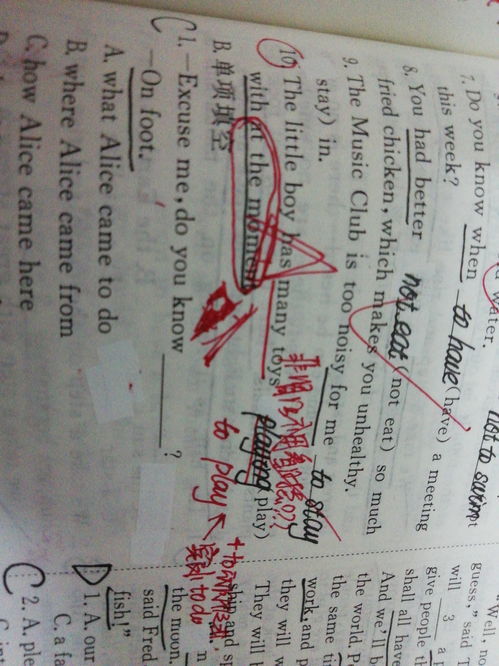 not to swim
7. Do you know when to have (have) a meeting
this week?
8. You had better not eat (not eat) so much
fried chicken, which makes you unhealthy.
9. The Music Club is too noisy for me to stay
stay) in.
10. The little boy has many toys playing play)
with at the moment.
to play
to do
B. 单项填空
C 1. —Excuse me, do you know ______?
—On foot.
A. what Alice came to do
B. where Alice came from
C. how Alice came here
Well, no
guess," said
will 3 a
give people
shall all have
And we'll
the world.
the same
work, and
they will
They will
the moon.
said Fred
fish!"
D 1. A. our
C. a
C 2. A.